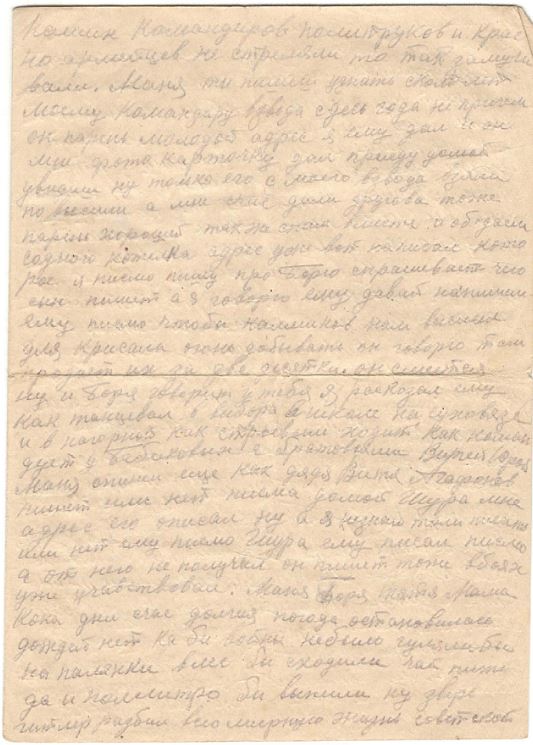 наших командиров политруков и крас
но армейцев не стреляли то так замучи
вали. Маня ты пишеш узнать сколько лет
моему командиру взвода здесь года не причем
он парень молодой адрес я ему дал и он
мне фото карточку дал приеду домой
увидиш ну только его с моего взвода взяли
по высили а мне счас дали другова тоже
парень хороший так же спим вместе и обедаем
с одного котелка адрес уже вот написал кого
рас. я писмо пишу про Борю спрашивает что
сын пишет а я говорю ему давай напишем
ему писмо чтобы камликов нам выслал
для кресала огонь добывать он говорю там
продает их за две десятки он смеется
ну и Боря говорит у тебя я расказал ему
как танцевал в выбора в школе на
и в нагорная как строевым ходит как коман
дует у Бабаковых с братовыми Витей
Маня опиши еще как дядя Витя Агафонов
пишет или нет писма домой Шура мне
адрес его описал ну а я незнаю толи писать
или нет ему писмо Шура ему писал писмо
а от него не получал он пишет тоже в боях
уже учавствовал. Маня Боря тятя Мама
Кока дни счас долгия погода остановилась
дождей нет ка бы войны небыло гуляли бы
на палянки в лес бы сходили чай пише
да и поллитро бы выпили ну зверь
гитлер разбил всю мирную жизнь советской